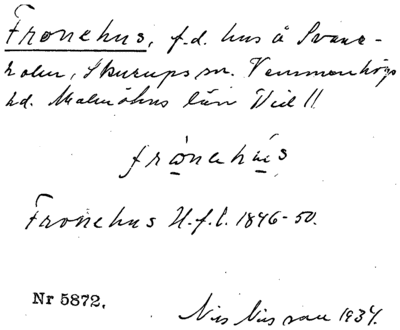 Fronehus, f.d. hus å Svane-
holm, Skurups sn. Vemmenhögs
hd. Malmöhus län Vid 11
frånehus
Fronehus H.f.l. 1846-50.
Nr 5872.
Nils Nilsson 1934.